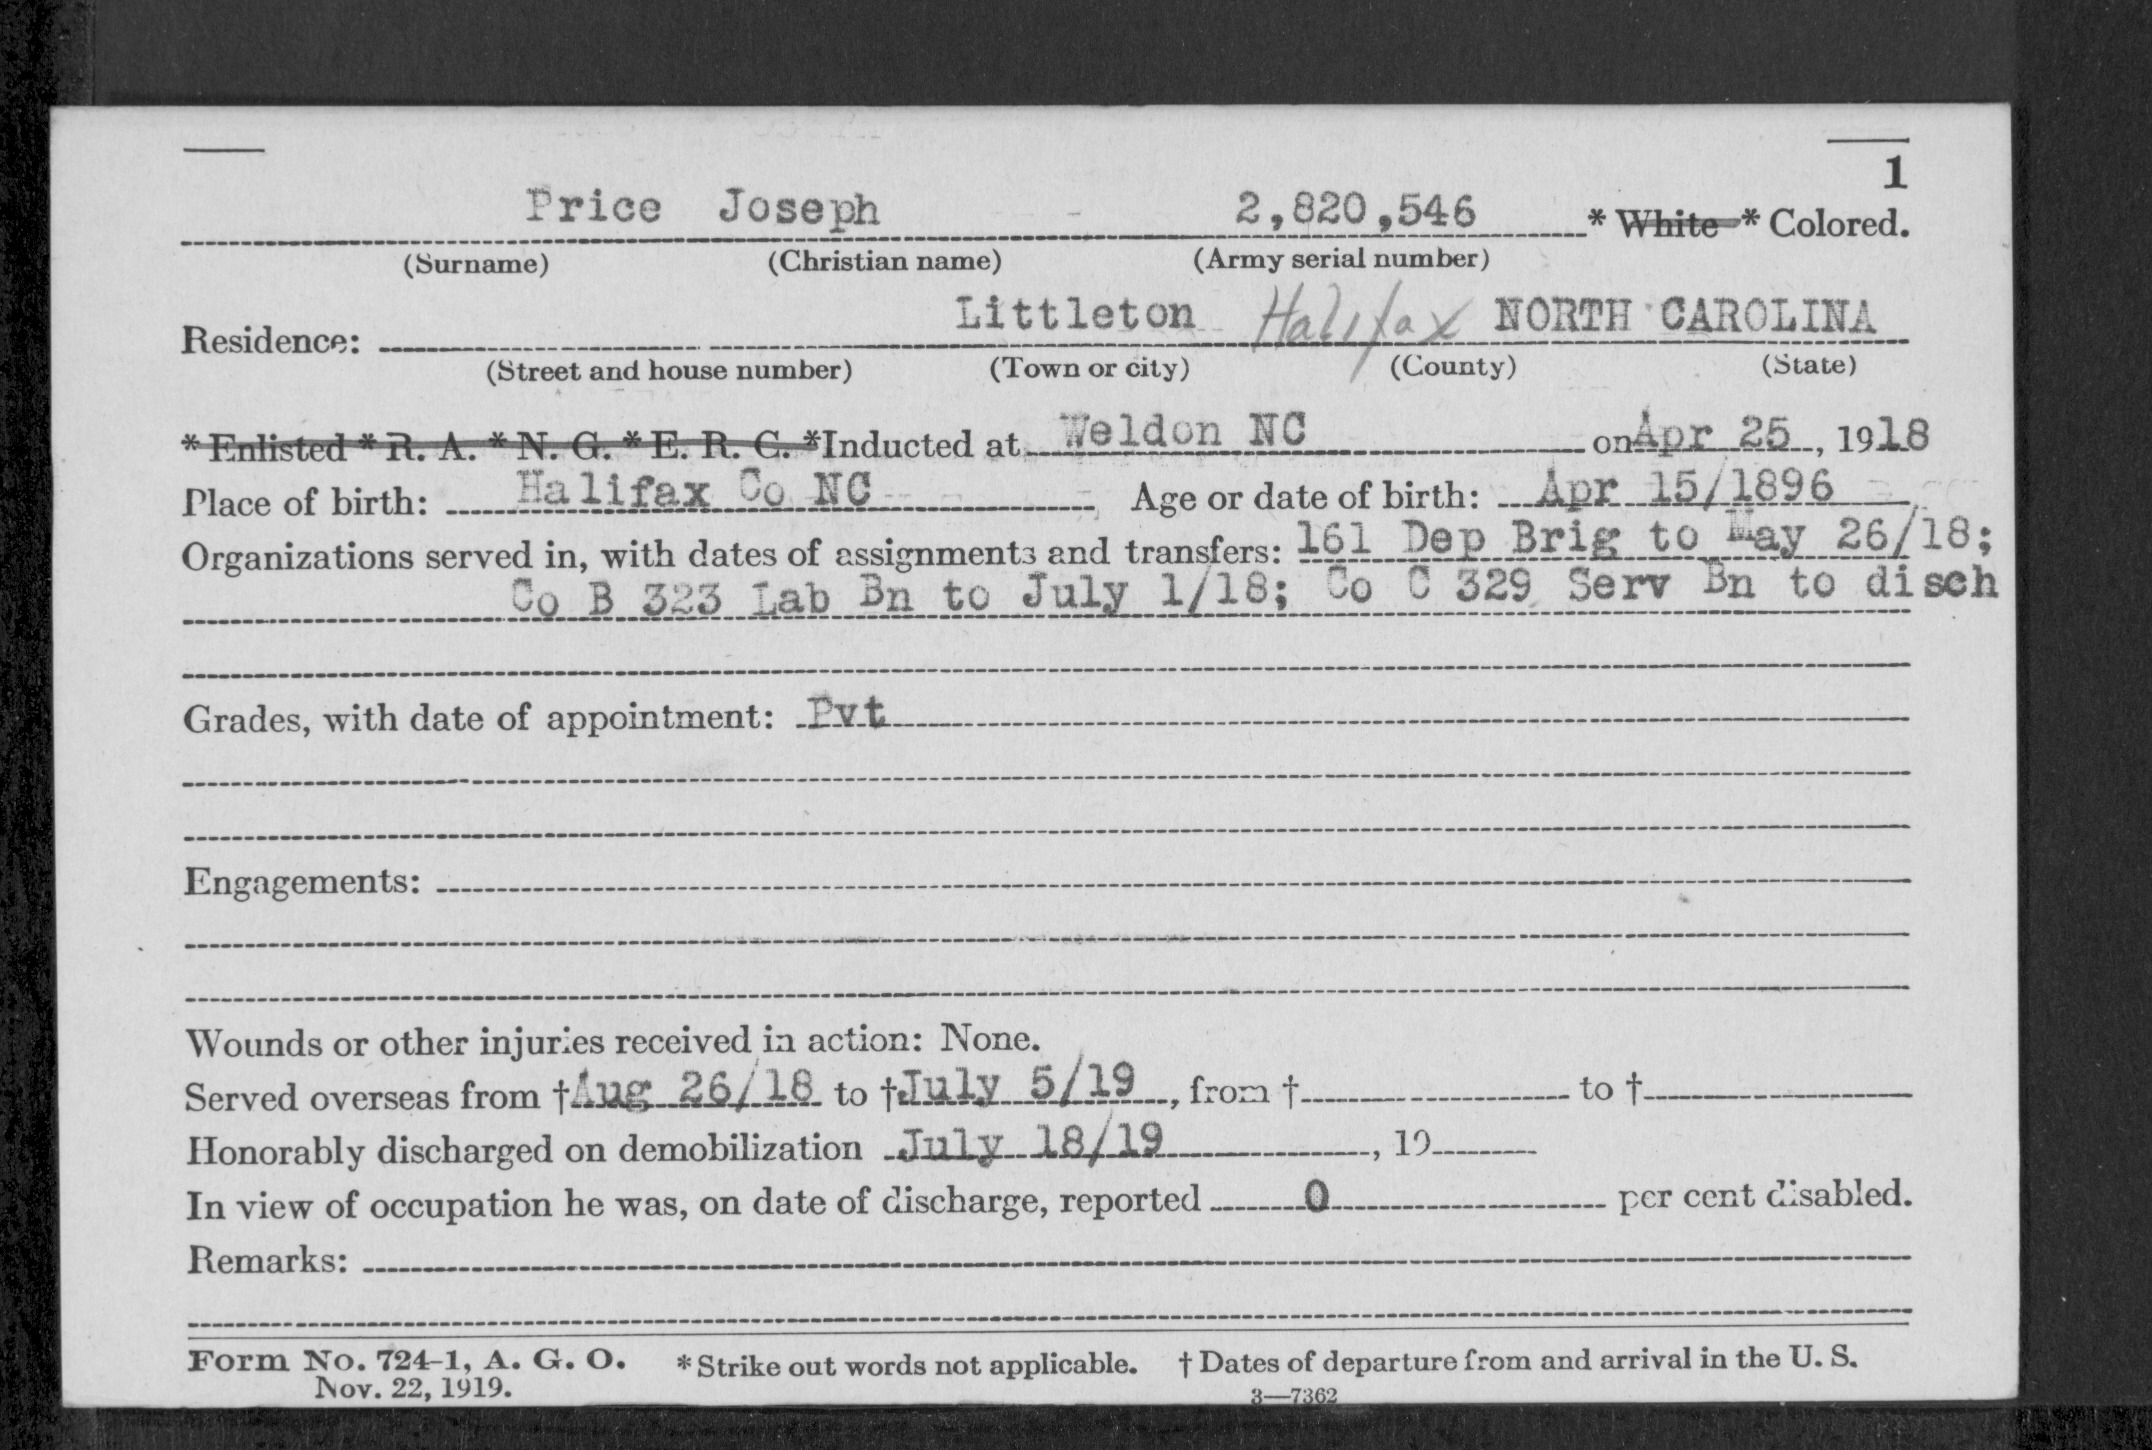 1
Price Joseph 2,820,546 * White * Colored.
(Surname) (Christian name) (Army serial number)
Residence: Littleton Halifax NORTH CAROLINA
(Street and house number) (Town or city) (County) (State)
* Enlisted * R. A. * N. G. * E. R. C. *Inducted at Weldon NC on Apr 25, 1918
Place of birth: Halifax Co NC Age or date of birth: Apr 15/1896
Organizations served in, with dates of assignments and transfers: 161 Dep Brig to May 26/18;
Co B 323 Lab Bn to July 1/18; Co C 329 Serv Bn to disch
Grades, with date of appointment: Pvt
Engagements:
Wounds or other injuries received in action: None.
Served overseas from †Aug 26/18 to †July 5/19, from † to †
Honorably discharged on demobilization July 18/19, 19
In view of occupation he was, on date of discharge, reported 0 per cent disabled.
Remarks:
Form No. 724-1, A. G. O. *Strike out words not applicable. † Dates of departure from and arrival in the U. S.
Nov. 22, 1919. 3—7362